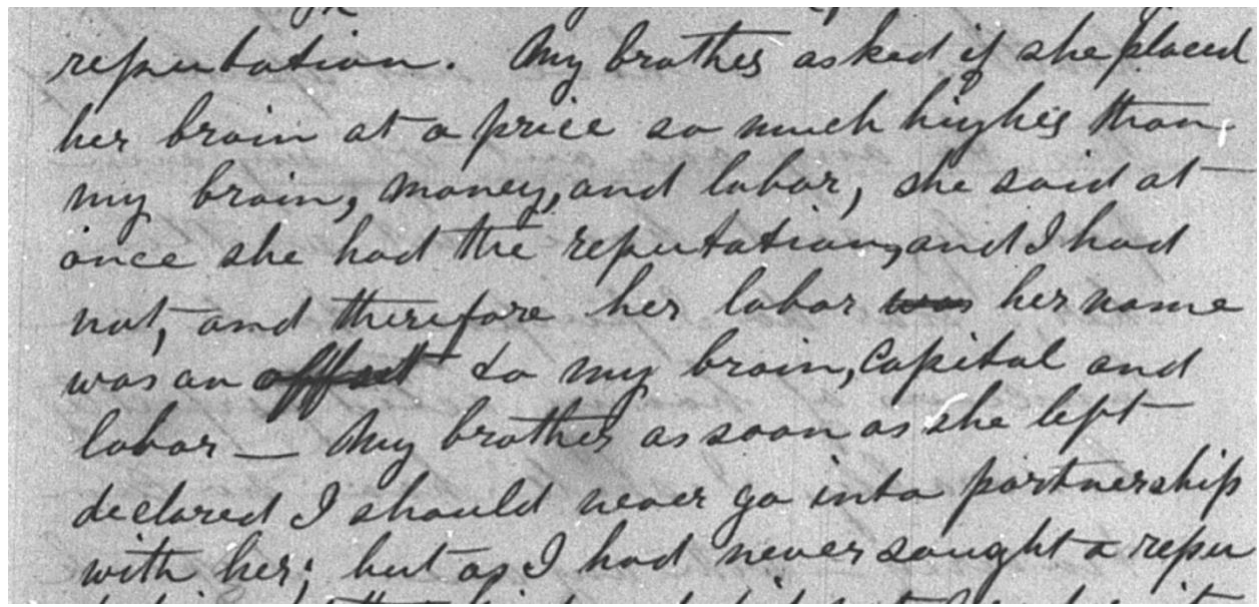 reputation. My brother asked if she placed
her brain at a price so much higher than
my brain, money, and labor, she said at
once she had the reputation, and I had
not, and therefore her labor was her name
was an offset to my brain, Capital and
labor — My brother as soon as she left
declared I should never go into partnership
with her; but as I had never sought a repu